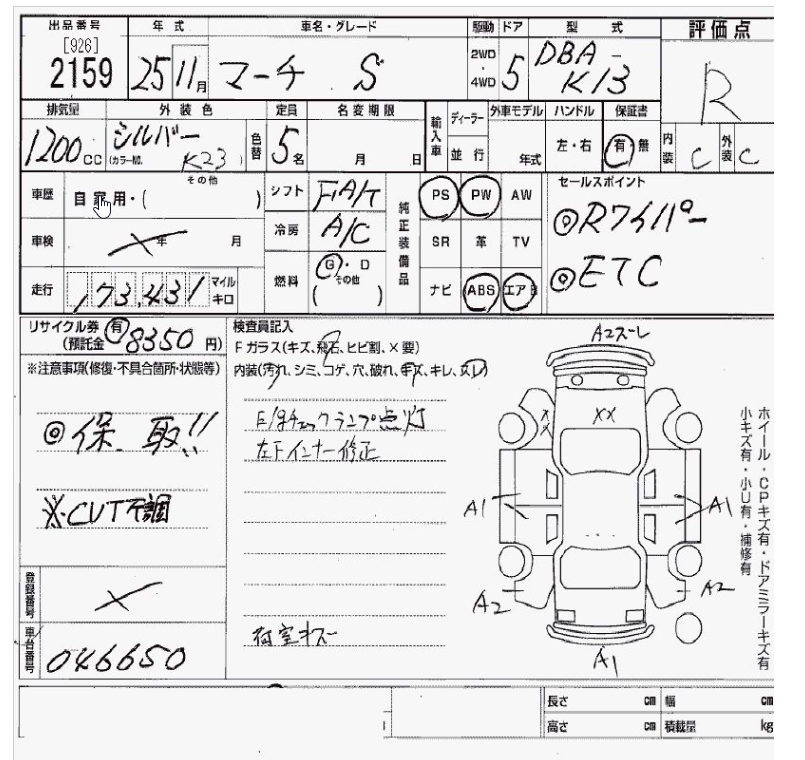 出品番号 年式 車名・グレード 駆動 ドア 型式 評価点
[926]
2159 25 11月 マーチ S 2WD・4WD 5 DBA-K13 R
排気量 外装色 定員 名変期限 輸入車 ディーラー 外車モデル ハンドル 保証書 内装 C 外装 C
1200cc シルバー (カラーNo. K23) 色替 5名 月 日 並行 年式 左・右 有・無
車歴 自家用・( その他 ) シフト FAT 純正装備品 PS PW AW セールスポイント
車検 年 月 冷房 A/C SR 革 TV ◎Rワイパー
走行 173,431 マイル キロ 燃料 G・D その他 ( ) ナビ ABS エアB ◎ETC
リサイクル券 有
(預託金 8350 円)
※注意事項(修復・不具合箇所・状態等)
◎保、取!!
※CVT不調
登録番号
車台番号 046650
検査員記入
Fガラス(キズ、飛石、ヒビ割、×要)
内装(汚れ、シミ、コゲ、穴、破れ、キズ、キレ、スレ)
E/gチェックランプ点灯
左Fインナー修正
荷室キズ
A2スーレ
XX
X
X
A1 A1
A2 A2
A1
ホイール・CPキズ有・ドアミラーキズ有
小キズ有・小U有・補修有
長さ cm 幅 cm
高さ cm 積載量 kg